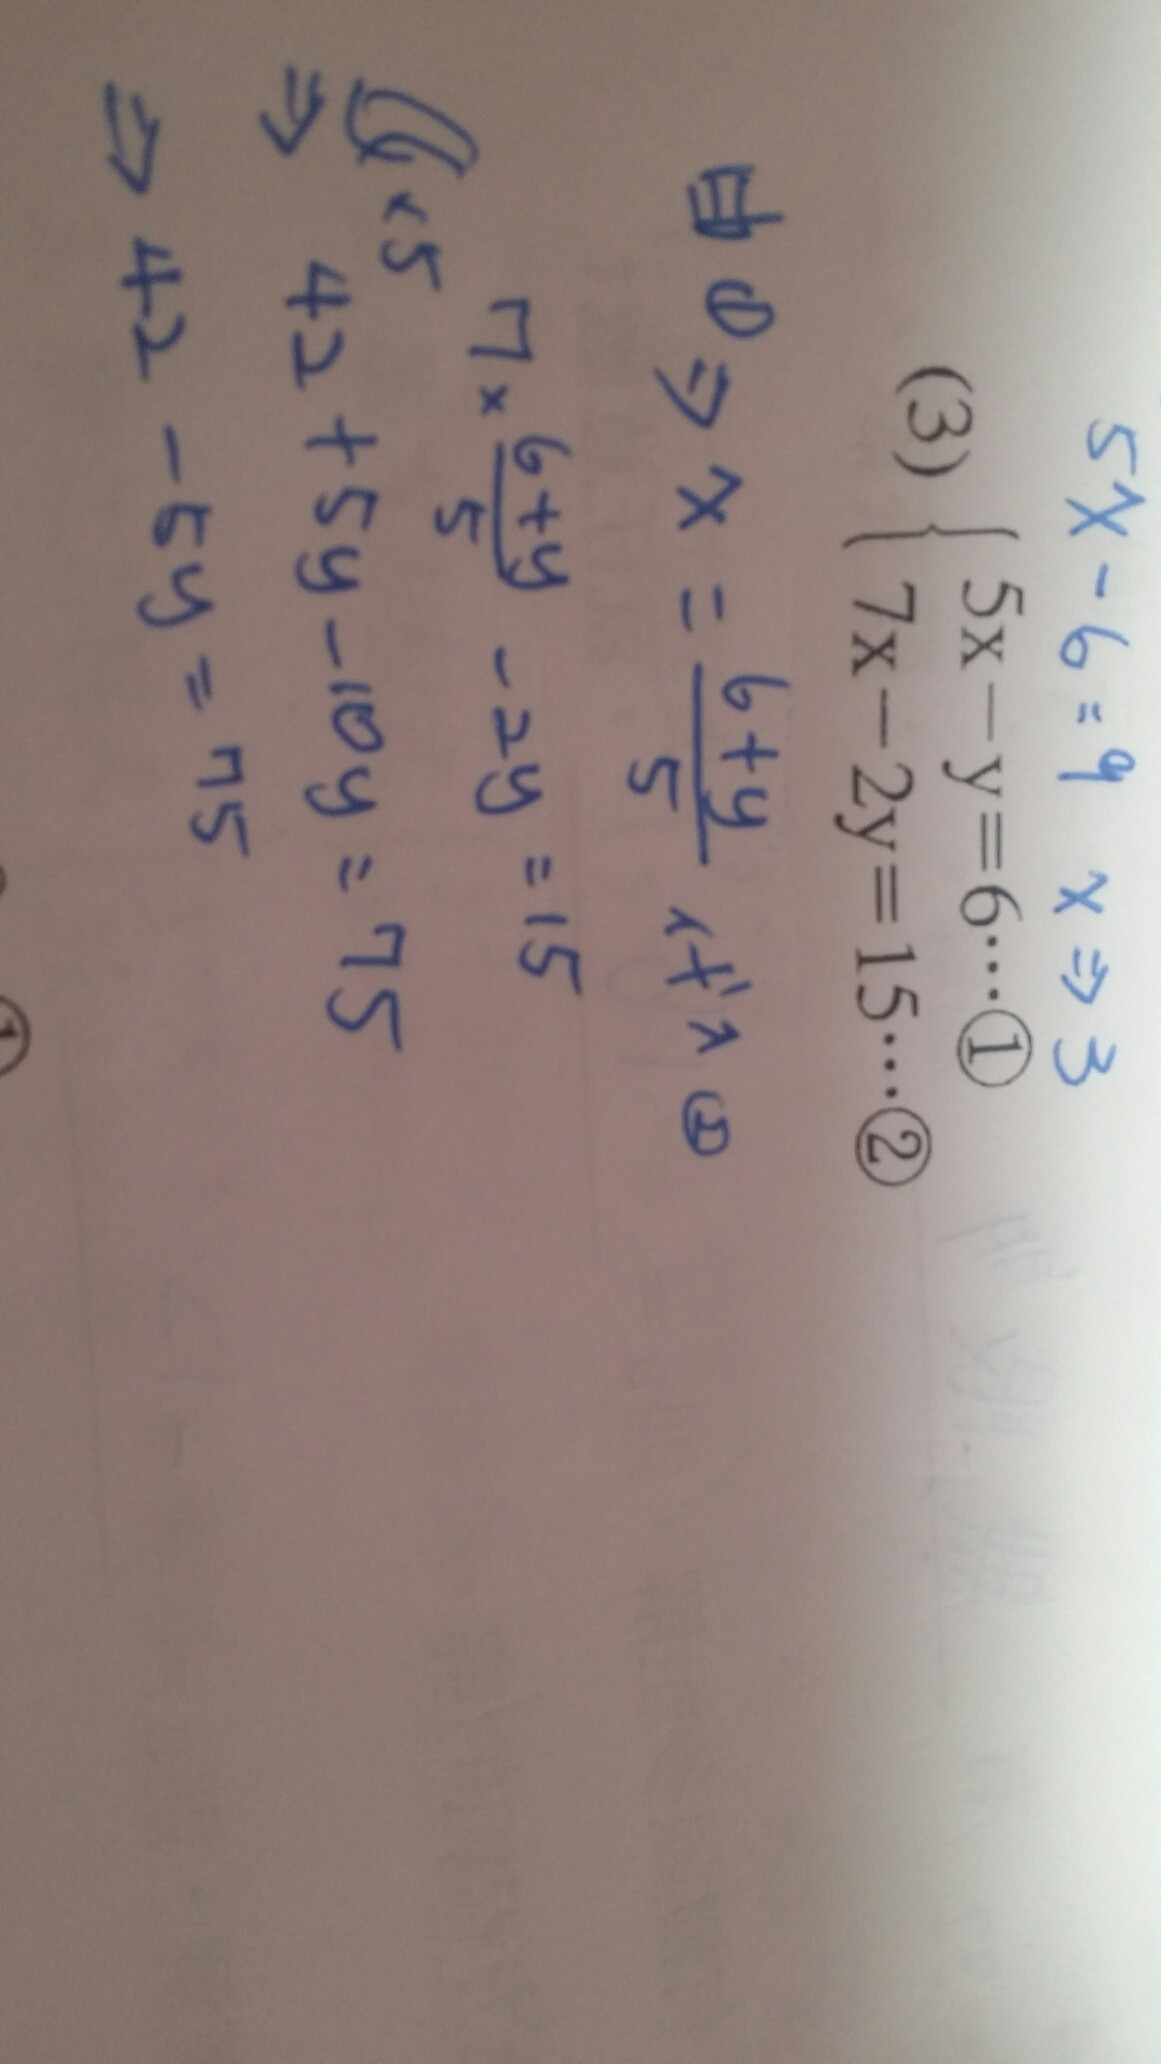 5x-6=9 x⇒3
(3) { 5x-y=6…①
7x-2y=15…②
由①⇒ x = 6+y/5 代入②
7× 6+y/5 -2y=15
×5
⇒ 42+5y-10y=75
⇒ 42-5y=75